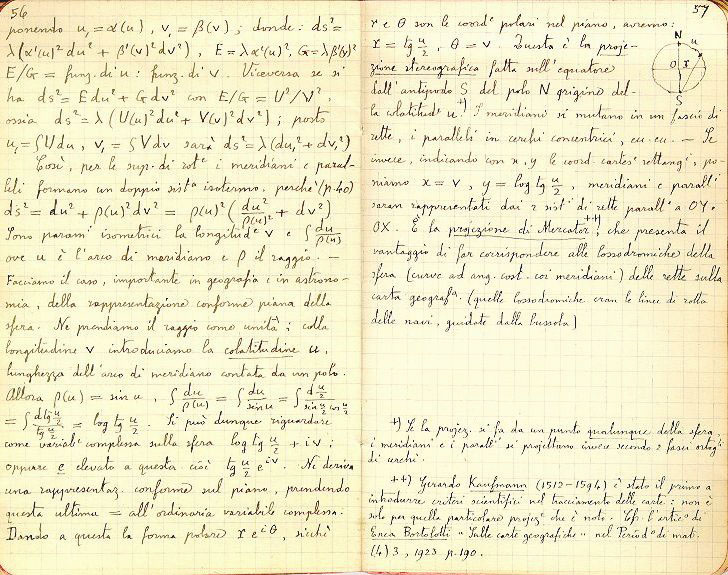 56
ponendo u₁ = α(u), v₁ = β(v); donde: ds² =
λ(α'(u)² du² + β'(v)² dv²), E = λα'(u)², G = λβ'(v)²
E/G = funz. di u : funz. di v. Viceversa se si
ha ds² = E du² + G dv² con E/G = U²/V²,
ossia ds² = λ(U(u)² du² + V(v)² dv²); posto
u₁ = ∫U du, v₁ = ∫V dv sarà ds² = λ(du₁² + dv₁²)
Così, per le sup. di rotᵉ i meridiani e paral-
leli formano un doppio sistᵃ isotermo, perchè (p. 40)
ds² = du² + ρ(u)² dv² = ρ(u)² (du²/ρ(u)² + dv²)
Sono paramⁱ isometrici la longitᵈᵉ v e ∫ du/ρ(u)
ove u è l'arco di meridiano e ρ il raggio. —
Facciamo il caso, importante in geografia e in astrono-
mia, della rappresentazione conforme piana della
sfera. Ne prendiamo il raggio come unità; colla
longitudine v introduciamo la colatitudine u,
lunghezza dell'arco di meridiano contata da un polo.
Allora ρ(u) = sin u, ∫ du/ρ(u) = ∫ du/sin u = ∫ d u/2 / sin u/2 cos u/2
= ∫ d tg u/2 / tg u/2 = log tg u/2. Si può dunque riguardare
come variabᵉ complessa sulla sfera log tg u/2 + iv;
oppure e elevato a questa, cioè tg u/2 e^{iv}. Ne deriva
una rappresentaz. conforme sul piano, prendendo
questa ultima = all'ordinaria variabile complessa.
Dando a questa la forma polare r e^{iθ}, sicchè
57
r e θ son le coordᵉ polari nel piano, avremo:
r = tg u/2, θ = v. Questa è la proje-
zione stereografica fatta sull'equatore
dall'antipodo S del polo N origine del-
la colatitudᵉ u +). I meridiani si mutano in un fascio di
rette, i paralleli in cerchi concentrici, ecc. ecc. — Se
invece, indicando con x, y le coord. cartesᵉ rettangⁱ, po
niamo x = v, y = log tg u/2, meridiani e parallⁱ
saran rappresentati dai 2 sistⁱ di rette parallᵉ a OY e
OX. È la projezione di Mercator ++), che presenta il
vantaggio di far corrispondere alle lossodromiche della
sfera (curve ad ang. cost. coi meridiani) delle rette sulla
carta geografᵃ. (quelle lossodromiche eran le linee di rotta
delle navi, guidate dalla bussola)
N
u
O
r
S
+) Se la projez. si fa da un punto qualunque della sfera
i meridiani e i parallⁱ si projettano invece secondo 2 fasci ortogⁱ
di cerchi.
++) Gerardo Kaufmann (1512-1594) è stato il primo a
introdurre criteri scientifici nel tracciamento delle carte: non è
solo per quella particolare projezᵉ che è noto. Cfr. l'articᵒ di
Enea Bortolotti "Sulle carte geografiche" nel Periodᵒ di mat.
(4) 3, 1923 p. 190.